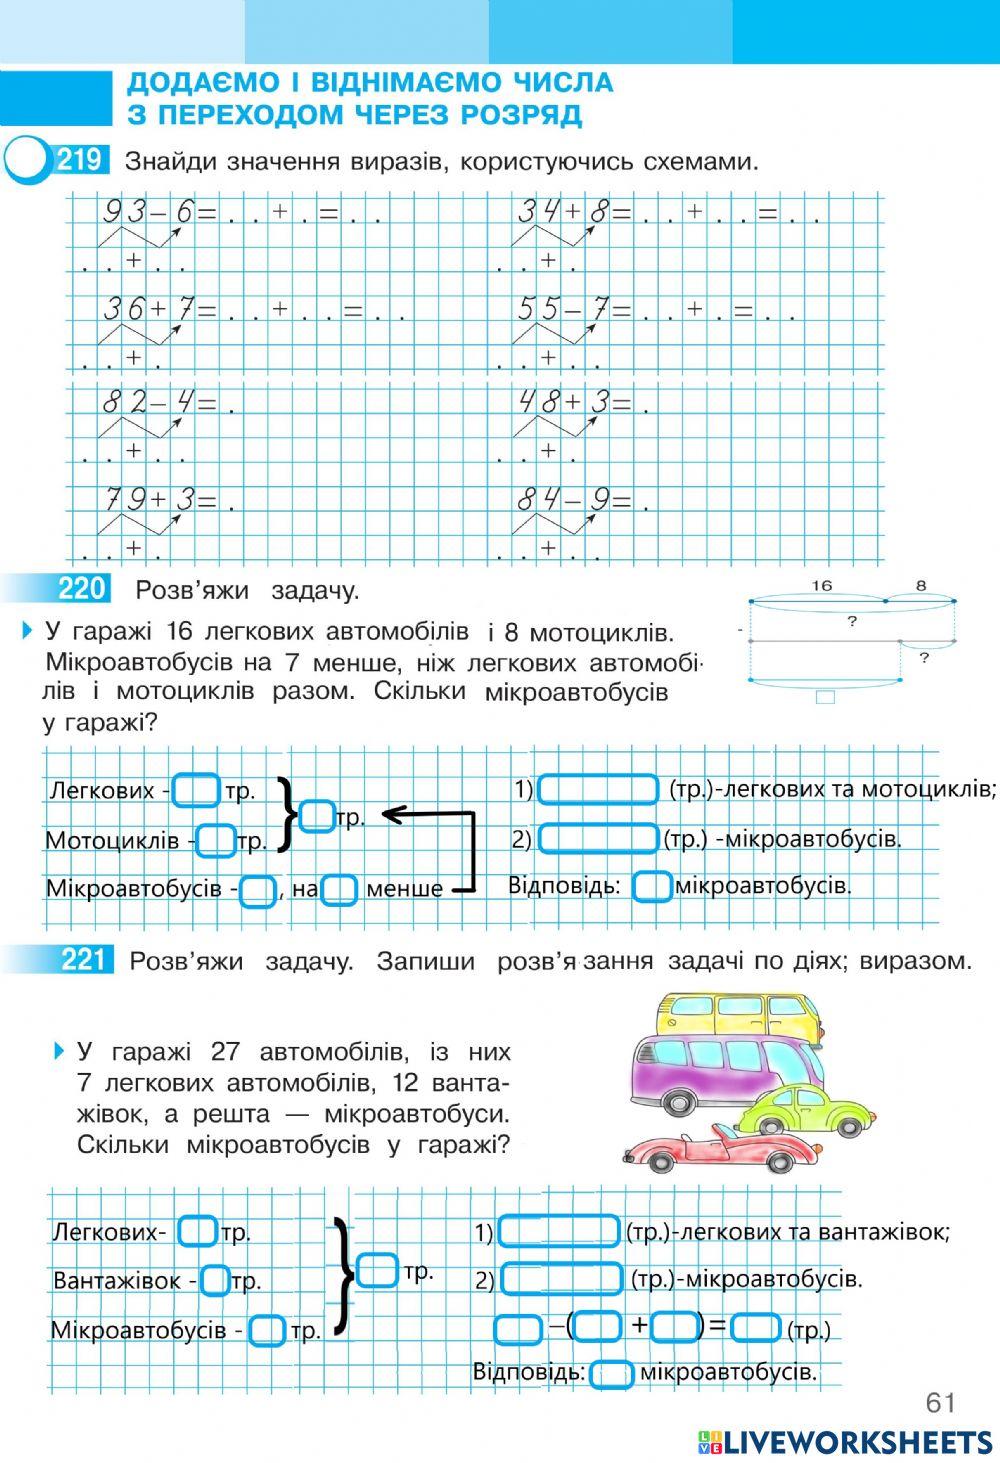 ДОДАЄМО І ВІДНІМАЄМО ЧИСЛА
З ПЕРЕХОДОМ ЧЕРЕЗ РОЗРЯД
219 Знайди значення виразів, користуючись схемами.
93-6=. . + . = . . 34+8=. . + . . = . .
. . + . . . . + .
36+7=. . + . . = . . 55-7=. . + . = . .
. . + . . . + . .
82-4=. 48+3=.
. . + . . . . + .
79+3=. 84-9=.
. . + . . . + . .
220 Розв’яжи задачу.
16 8
?
-
?
У гаражі 16 легкових автомобілів і 8 мотоциклів.
Мікроавтобусів на 7 менше, ніж легкових автомобі-
лів і мотоциклів разом. Скільки мікроавтобусів
у гаражі?
Легкових - тр.
Мотоциклів - тр.
} тр.
Мікроавтобусів - , на менше
1) (тр.)-легкових та мотоциклів;
2) (тр.) -мікроавтобусів.
Відповідь: мікроавтобусів.
221 Розв’яжи задачу. Запиши розв’язання задачі по діях; виразом.
У гаражі 27 автомобілів, із них
7 легкових автомобілів, 12 ванта-
жівок, а решта — мікроавтобуси.
Скільки мікроавтобусів у гаражі?
Легкових- тр.
Вантажівок - тр.
Мікроавтобусів - тр.
} тр.
1) (тр.)-легкових та вантажівок;
2) (тр.)-мікроавтобусів.
–( + )= (тр.)
Відповідь: мікроавтобусів.
61
LIVEWORKSHEETS